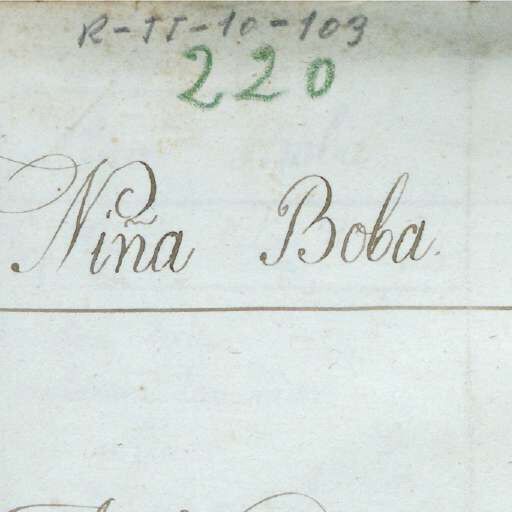 R-II-10-103
220
Niña Boba.